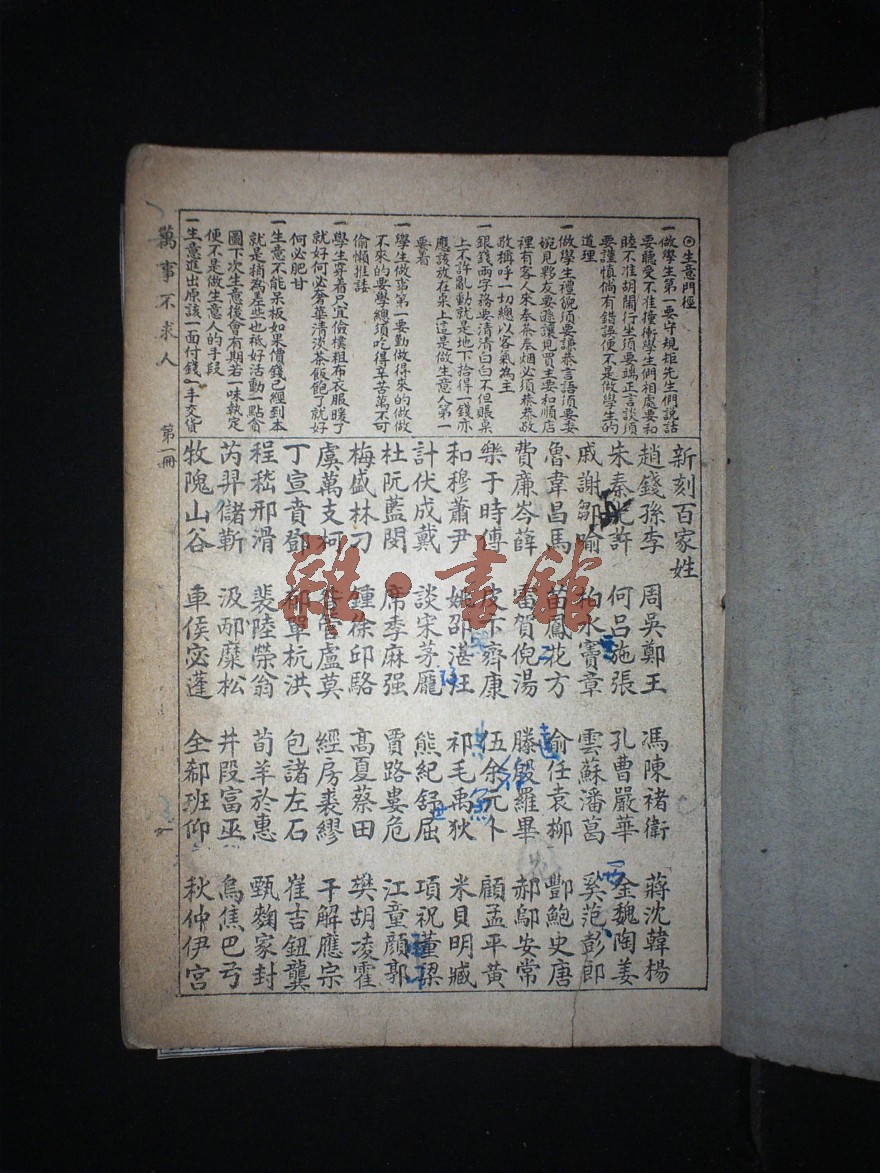 萬事不求人　第一冊
⦿生意門徑
一做學生第一要守規矩先生們說話
要聽受不准撞衝學生們相處要和
睦不准胡鬧行坐須要端正言談須
要謹慎倘有錯誤便不是做學生的
道理
一做學生禮貌須要謙恭言語須要委
婉見夥友要遜讓見買主要和順店
裡有客人來奉茶奉烟必須恭恭敬
敬稱呼一切總以客氣為主
一銀錢兩字務要清清白白不但賬桌
上不許亂動就是地下拾得一錢亦
應該放在桌上這是做生意人第一
要着
一學生做事第一要勤做得來的做做
不來的要學總須吃得辛苦萬不可
偷懶推諉
一學生穿着只宜儉樸粗布衣服暖了
就好何必奢華清淡茶飯飽了就好
何必肥甘
一生意不能呆板如果價錢已經到本
就是稍為差些也祇好活動一點貪
圖下次生意後會有期若一味執定
便不是做生意人的手段
一生意進出原該一面付錢一手交貨
新刻百家姓
趙錢孫李　周吳鄭王　馮陳褚衛　蔣沈韓楊
朱秦許　何呂施張　孔曹嚴華　金魏陶姜
戚謝鄒喻　柏水竇章　雲蘇潘葛　奚范彭郎
魯韋昌馬　苗鳳花方　俞任袁柳　酆鮑史唐
費廉岑薛　雷賀倪湯　滕殷羅畢　郝鄔安常
樂于時傅　皮卞齊康　伍余元卜　顧孟平黃
和穆蕭尹　姚邵湛汪　祁毛禹狄　米貝明臧
計伏成戴　談宋茅龐　熊紀舒屈　項祝董梁
杜阮藍閔　席季麻强　賈路婁危　江童顏郭
梅盛林刁　鍾徐邱駱　高夏蔡田　樊胡凌霍
虞萬支柯　管盧莫　經房裘繆　干解應宗
丁宣賁鄧　郁單杭洪　包諸左石　崔吉鈕龔
程嵇邢滑　裴陸榮翁　荀羊於惠　甄麴家封
芮羿儲靳　汲邴糜松　井段富巫　烏焦巴弓
牧隗山谷　車侯宓蓬　全郗班仰　秋仲伊宮
雜·書館